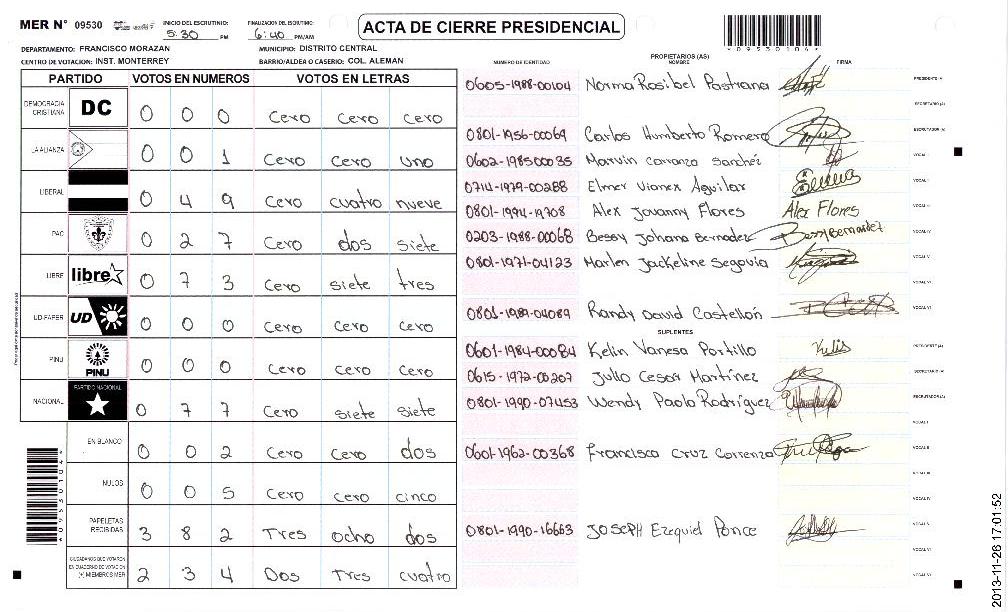 MER N° 09530 INICIO DEL ESCRUTINIO: 5:30 PM FINALIZACION DEL ESCRUTINIO: 6:40 PM/AM
ACTA DE CIERRE PRESIDENCIAL
09530104
DEPARTAMENTO: FRANCISCO MORAZAN MUNICIPIO: DISTRITO CENTRAL
CENTRO DE VOTACION: INST. MONTERREY BARRIO/ALDEA O CASERIO: COL. ALEMAN
PARTIDO VOTOS EN NUMEROS VOTOS EN LETRAS
DEMOCRACIA CRISTIANA DC 0 0 0 Cero Cero Cero
LA ALIANZA 0 0 1 Cero Cero uno
LIBERAL 0 4 9 Cero cuatro nueve
PAC 0 2 7 Cero dos siete
LIBRE libre 0 7 3 Cero siete tres
UD-FAPER UD 0 0 0 Cero Cero Cero
PINU PINU 0 0 0 Cero Cero Cero
NACIONAL PARTIDO NACIONAL 0 7 7 Cero siete siete
EN BLANCO 0 0 2 Cero Cero dos
NULOS 0 0 5 Cero Cero cinco
PAPELETAS RECIBIDAS 3 8 2 Tres ocho dos
CIUDADANOS QUE VOTARON EN CUADERNO DE VOTACION (+) MIEMBROS MER 2 3 4 Dos Tres cuatro
09530104
NUMERO DE IDENTIDAD PROPIETARIOS (AS) NOMBRE FIRMA
0605-1988-00104 Norma Rosibel Pastrana PRESIDENTE (A)
SECRETARIO (A)
0801-1956-00069 Carlos Humberto Romero ESCRUTADOR (A)
0602-1985-00035 Marvin Carranza Sanchez VOCAL I
0714-1979-00288 Elmer Vianex Aguilar
0801-1994-19708 Alex Jovanny Flores Alex Flores
0203-1988-00068 Bessy Johana Bernadez Bessy Bernardez VOCAL IV
0801-1971-04123 Marlen Jackeline Segovia VOCAL V
0801-1989-04089 Randy David Castellón
SUPLENTES
0601-1984-00084 Kelin Vanesa Portillo PRESIDENTE (A)
0615-1972-00207 Julio Cesar Martínez SECRETARIO (A)
0801-1990-07453 Wendy Paola Rodríguez ESCRUTADOR (A)
0601-1962-00368 Francisca Cruz Carrenza
0801-1990-16663 JOSEPH Ezequiel Ponce
2013-11-26 17:01:52